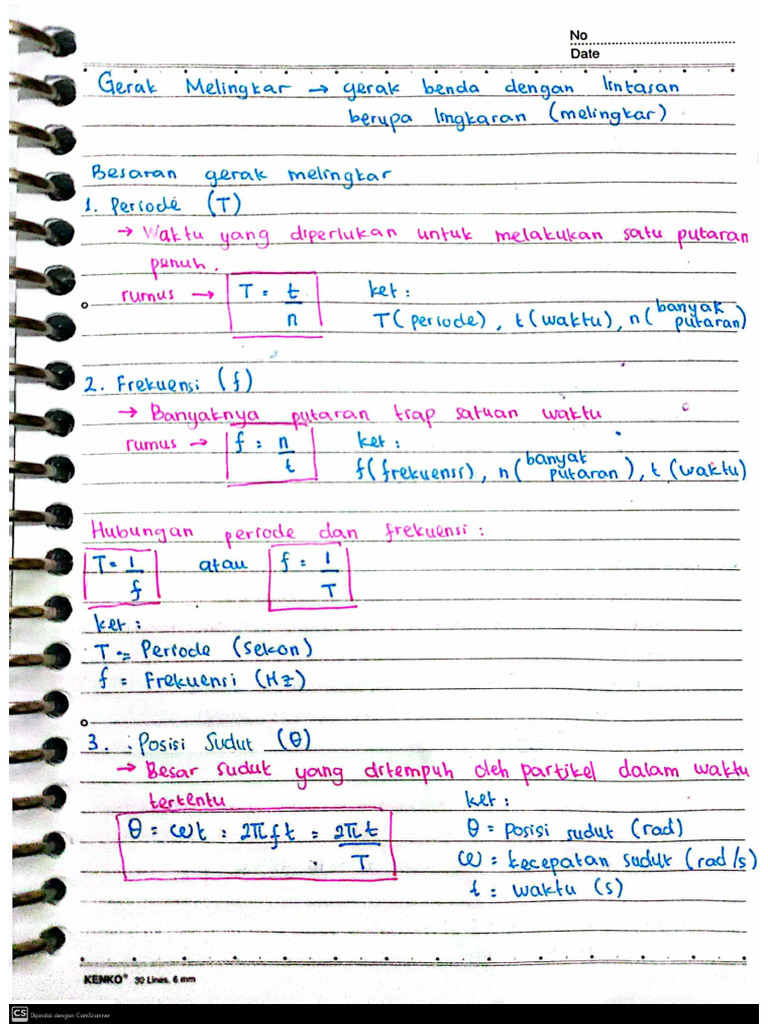 No
Date
Gerak Melingkar → gerak benda dengan lintasan
berupa lingkaran (melingkar)
Besaran gerak melingkar
1. Periode (T)
→ Waktu yang diperlukan untuk melakukan satu putaran
penuh.
rumus → T = t/n ket :
T (periode), t (waktu), n (banyak putaran)
2. Frekuensi (f)
→ Banyaknya putaran tiap satuan waktu
rumus → f = n/t ket :
f (frekuensi), n (banyak putaran), t (waktu)
Hubungan periode dan frekuensi :
T = 1/f atau f = 1/T
ket :
T = Periode (sekon)
f = Frekuensi (Hz)
3. Posisi Sudut (θ)
→ Besar sudut yang ditempuh oleh partikel dalam waktu
tertentu ket :
θ = ωt = 2πft = 2πt/T θ = posisi sudut (rad)
ω = kecepatan sudut (rad/s)
t = waktu (s)
KENKO® 30 Lines, 6 mm
CS Dipindai dengan CamScanner